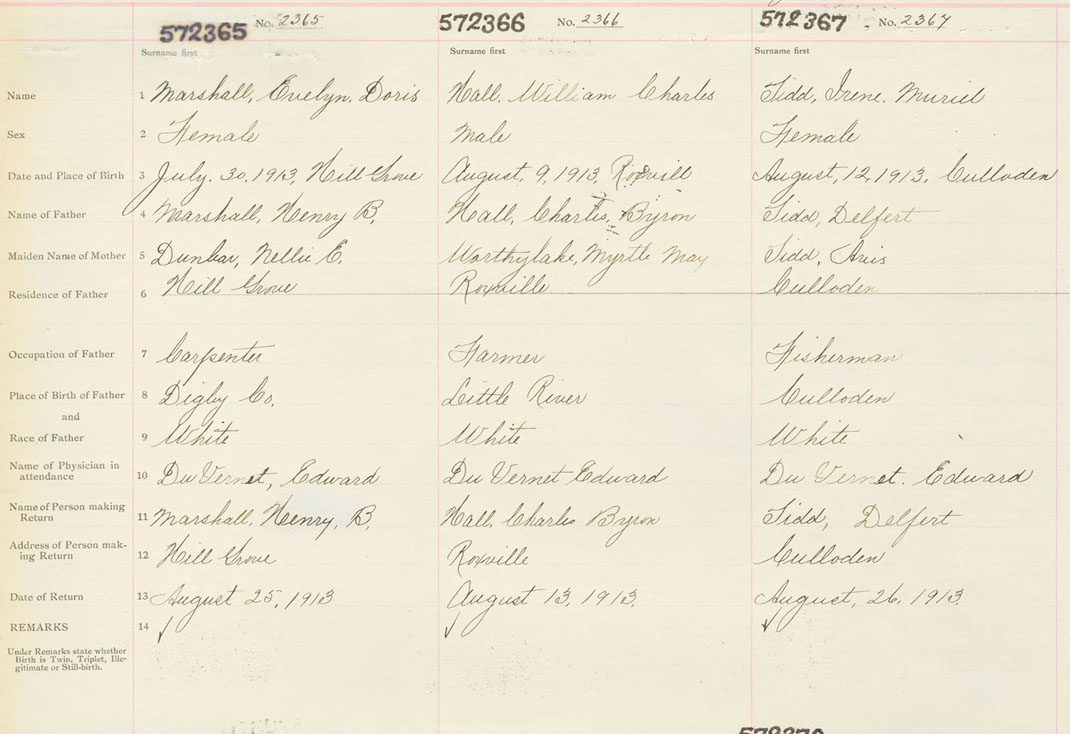 572365 No. 2365 572366 No. 2366 572367 No. 2367
Surname first Surname first Surname first
Name 1 Marshall, Evelyn, Doris Hall, William Charles Tidd, Irene. Muriel
Sex 2 Female Male Female
Date and Place of Birth 3 July. 30, 1913, Hill Grove August, 9, 1913, Roxvill August, 12, 1913, Culloden
Name of Father 4 Marshall, Henry B. Hall, Charles, Byron Tidd, Delfert
Maiden Name of Mother 5 Dunbar, Nellie E. Worthylake, Myrtle May Tidd,
Residence of Father 6 Hill Grove Roxville Culloden
Occupation of Father 7 Carpenter Farmer Fisherman
Place of Birth of Father 8 Digby Co. Little River Culloden
and
Race of Father 9 White White White
Name of Physician in
attendance 10 Du Vernet, Edward Du Vernet Edward Du Vernet. Edward
Name of Person making
Return 11 Marshall, Henry, B. Hall, Charles Byron Tidd, Delfert
Address of Person mak-
ing Return 12 Hill Grove Roxville Culloden
Date of Return 13 August 25, 1913 August 13, 1913. August, 26, 1913.
REMARKS 14
Under Remarks state whether
Birth is Twin, Triplet, Ille-
gitimate or Still-birth.